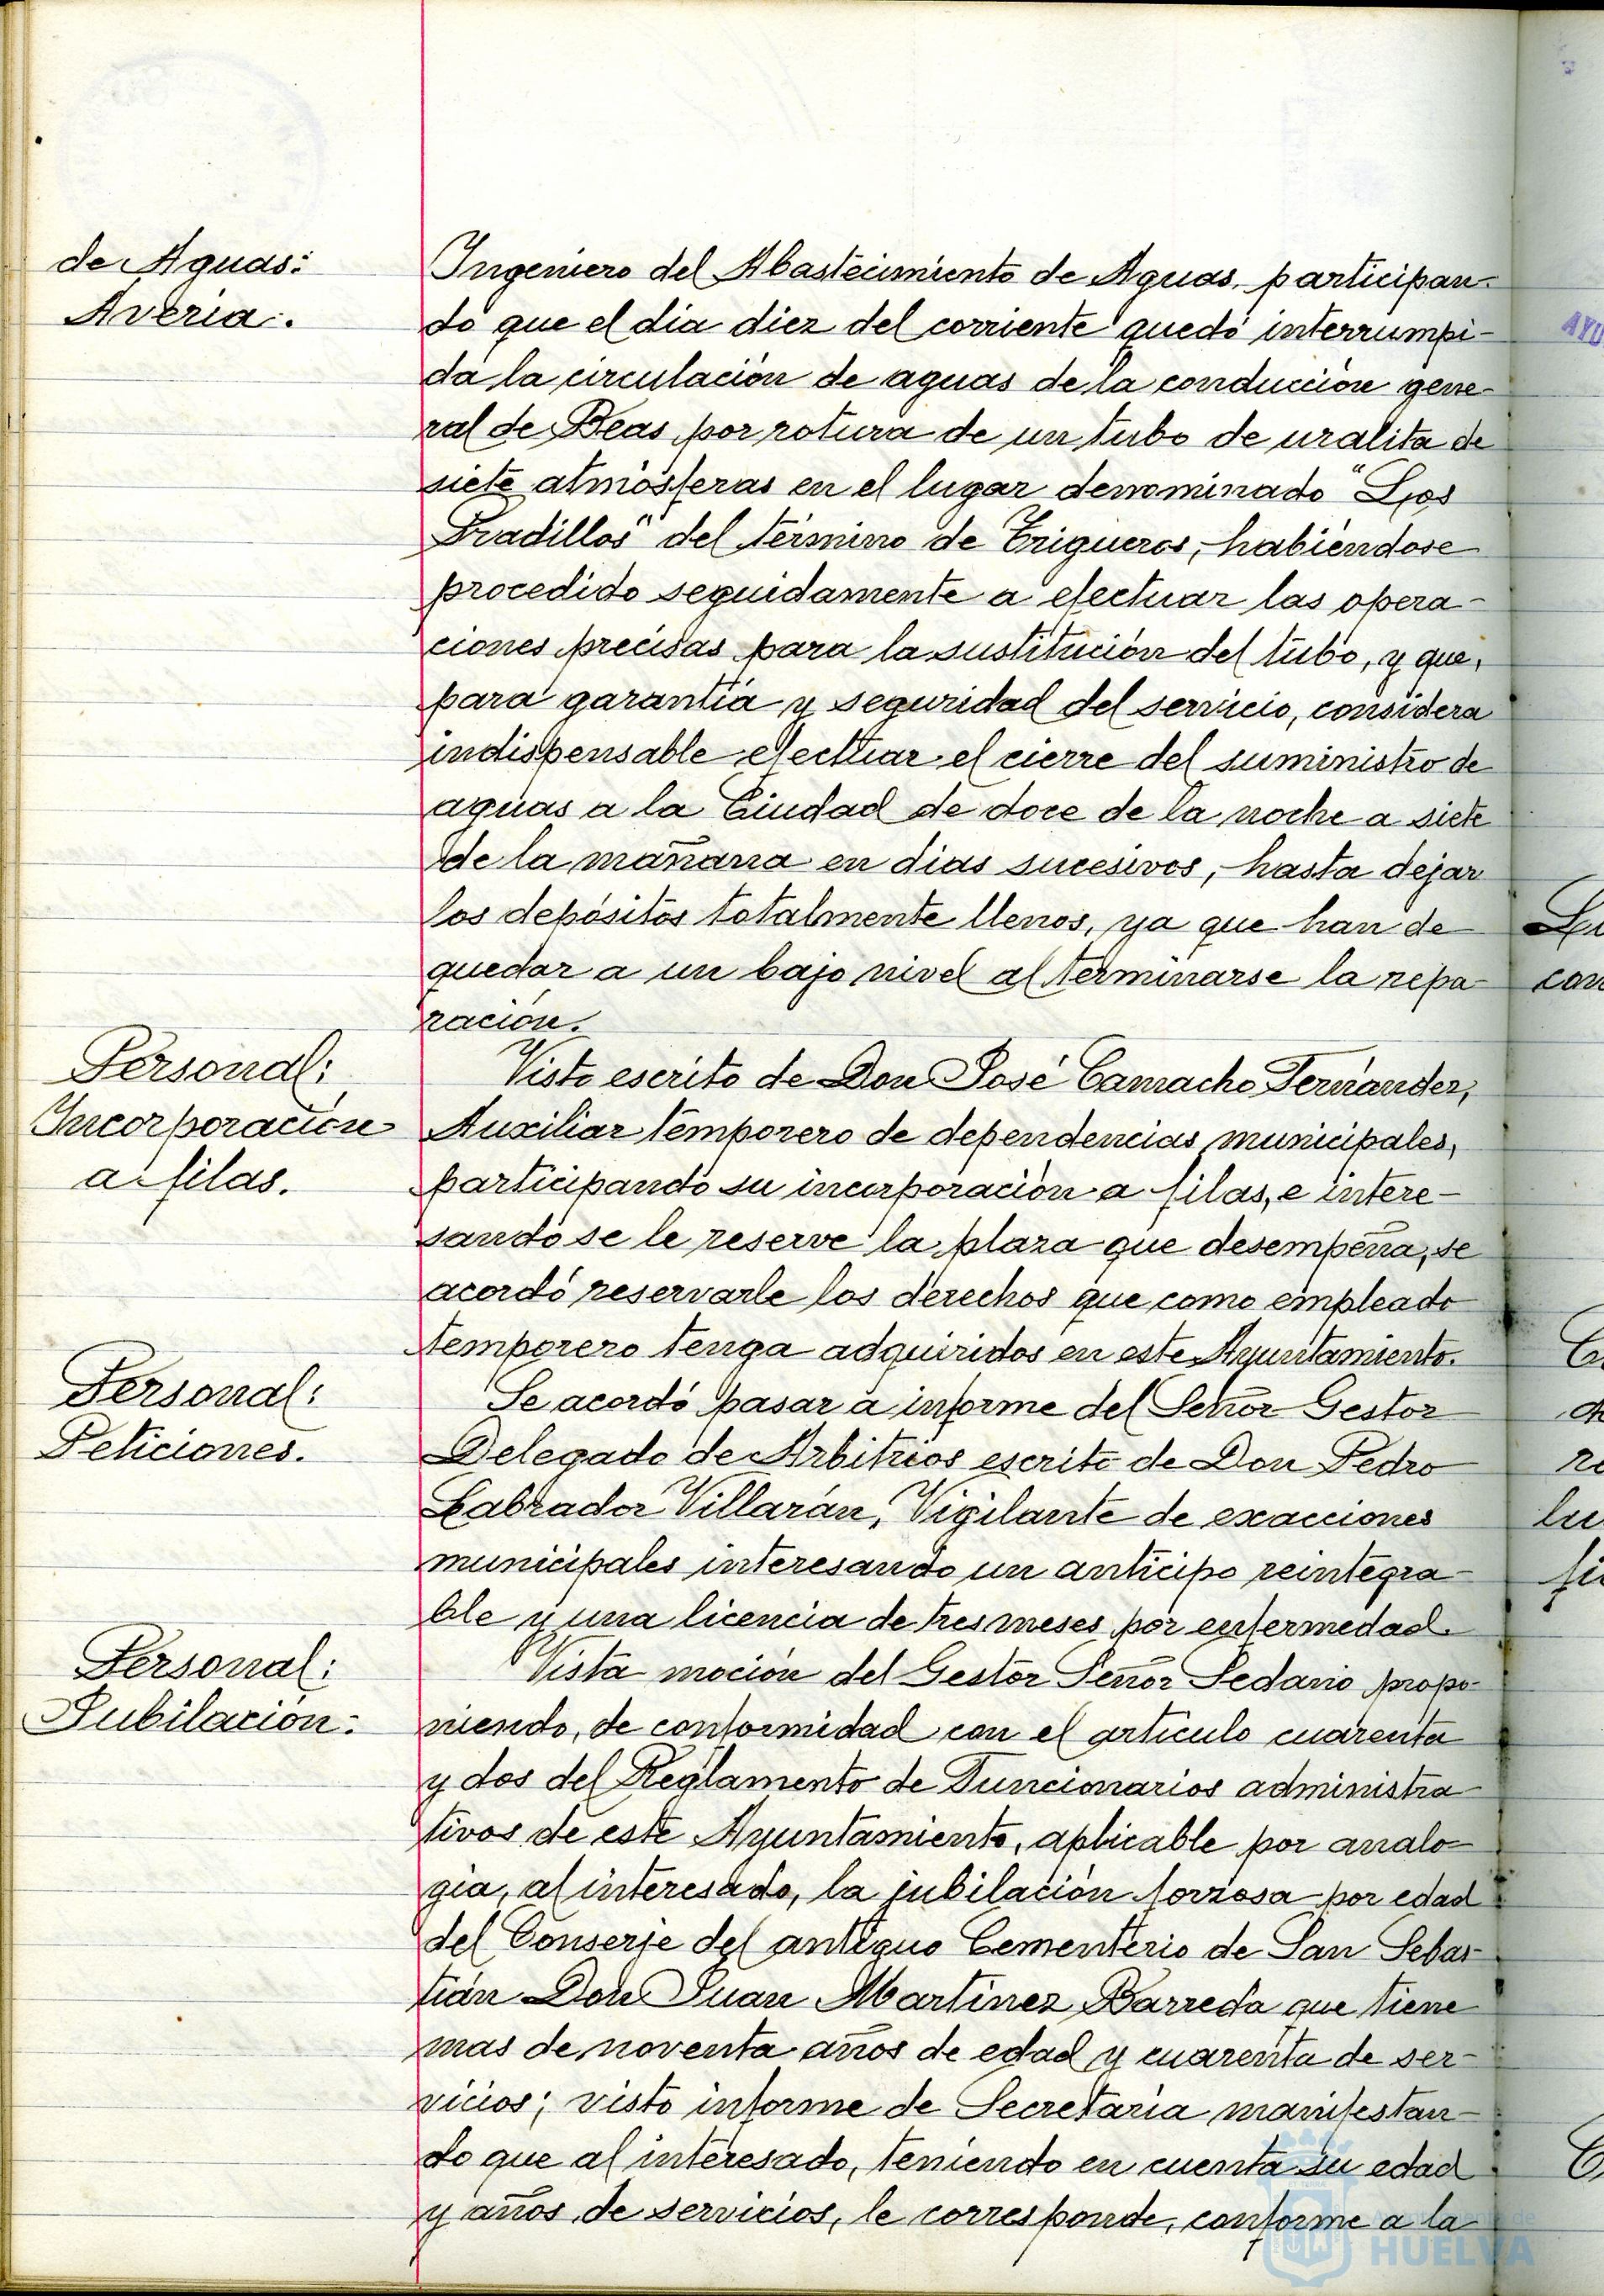 de Aguas:
Averia.
Ingeniero del Abastecimiento de Aguas, participan-
do que el dia diez del corriente quedó interrumpi-
da la circulación de aguas de la conducción gene-
ral de Beas por rotura de un tubo de uralita de
siete atmósferas en el lugar denominado "Los
Pradillos" del término de Trigueros, habiéndose
procedido seguidamente a efectuar las opera-
ciones precisas para la sustitución del tubo, y que,
para garantía y seguridad del servicio, considera
indispensable efectuar el cierre del suministro de
aguas a la Ciudad de doce de la noche a siete
de la mañana en dias sucesivos, hasta dejar
los depósitos totalmente llenos, ya que han de
quedar a un bajo nivel al terminarse la repa-
ración.
Personal:
Incorporación
a filas.
Visto escrito de Don José Camacho Fernandez,
Auxiliar temporero de dependencias municipales,
participando su incorporación a filas, e intere-
sando se le reserve la plaza que desempeña, se
acordó reservarle los derechos que como empleado
temporero tenga adquiridos en este Ayuntamiento.
Personal:
Peticiones.
Se acordó pasar a informe del Señor Gestor
Delegado de Arbitrios escrito de Don Pedro
Labrador Villarán, Vigilante de exacciones
municipales interesando un anticipo reintegra-
ble y una licencia de tres meses por enfermedad.
Personal:
Jubilación:
Vista moción del Gestor Señor Sedano propo-
niendo, de conformidad con el artículo cuarenta
y dos del Reglamento de Funcionarios administra-
tivos de este Ayuntamiento, aplicable por analo-
gía, al interesado, la jubilación forzosa por edad
del Conserje del antiguo Cementerio de San Sebas-
tián Don Juan Martinez Barreda que tiene
mas de noventa años de edad y cuarenta de ser-
vicios; visto informe de Secretaria manifestan-
do que al interesado, teniendo en cuenta su edad
y años de servicios, le corresponde, conforme a la
Ayuntamiento de
HUELVA